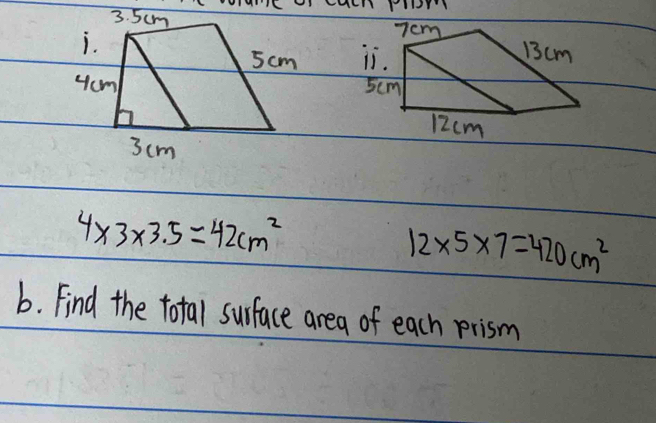 volume of each prism
3.5cm
i.
4cm
5cm
3cm
7cm
ii.
13cm
5cm
12cm
4×3×3.5=42cm²
12×5×7=420cm²
b. Find the total surface area of each prism